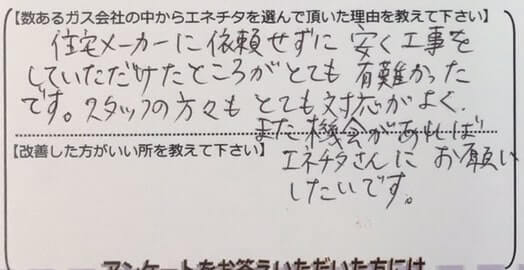 【数あるガス会社の中からエネチタを選んで頂いた理由を教えて下さい】
住宅メーカーに依頼せずに安く工事を
していただけたところがとても有難かった
です。スタッフの方々もとても対応がよく、
また機会があれば
【改善した方がいい所を教えて下さい】
エネチタさんにお願い
したいです。
アンケートをお答えいただいた方には